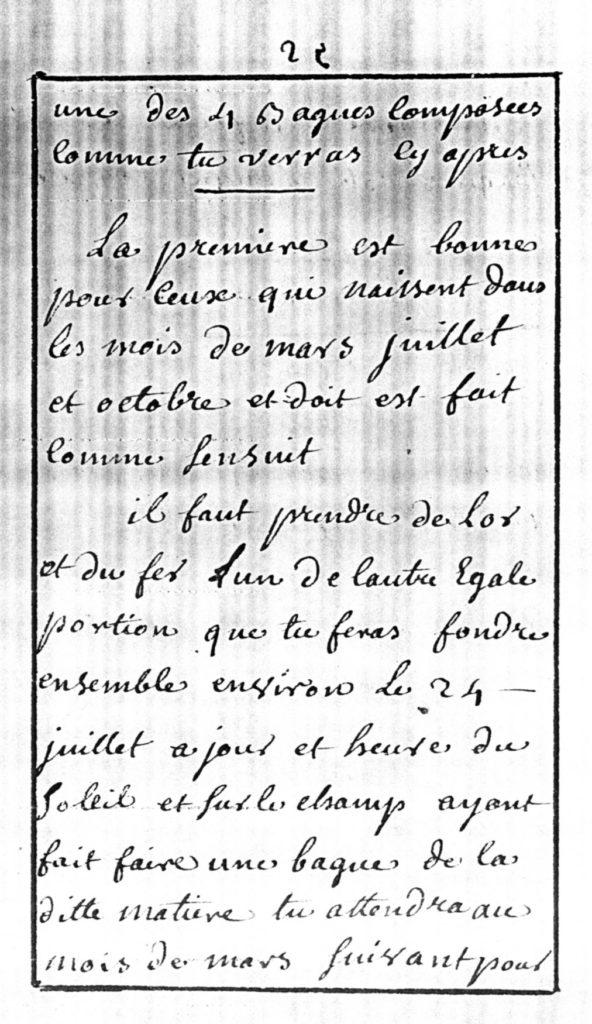 25
une des 4 Bagues Composées
Comme tu verras Cy apres
La premiere est bonne
pour Ceux qui naissent dans
les mois de mars juillet
et octobre et doit est fait
Comme sensuit
il faut prendre de Lor
et du fer Lun de Lautre Egale
portion que tu feras fondre
ensemble environ Le 24 —
juillet a jour et heure du
Soleil et sur le champ ayant
fait faire une bague de la
ditte matiere tu attendra au
mois de mars suivant pour